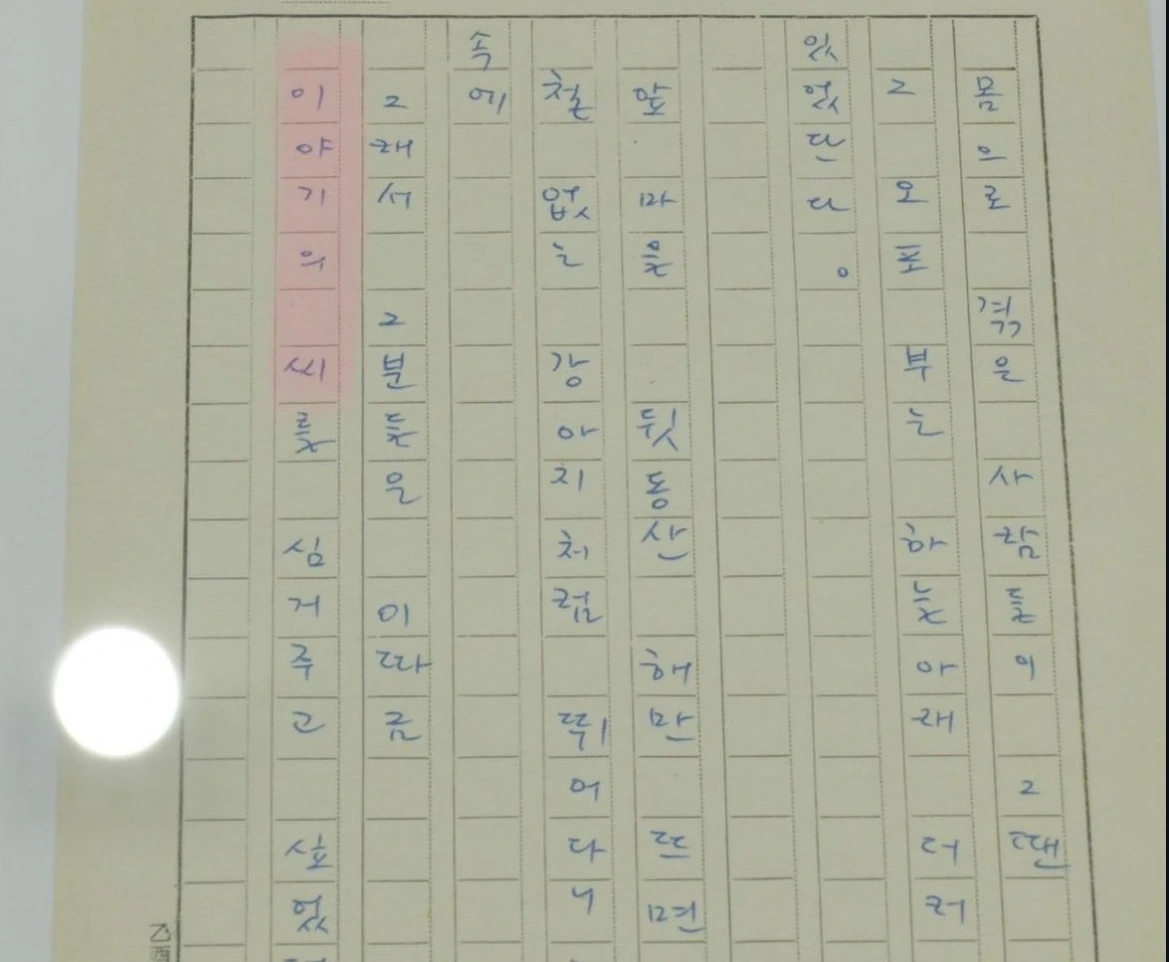 몸으로 겪은 사람들이 그땐
그 오포 부는 하늘 아래 더러
있었단다。
앞 마을 뒷동산 해만 뜨면
철 없는 강아지처럼 뛰어다니
속에
그래서 그분들은 이따금
이야기의 씨를 심거주고 싶었
乙酉